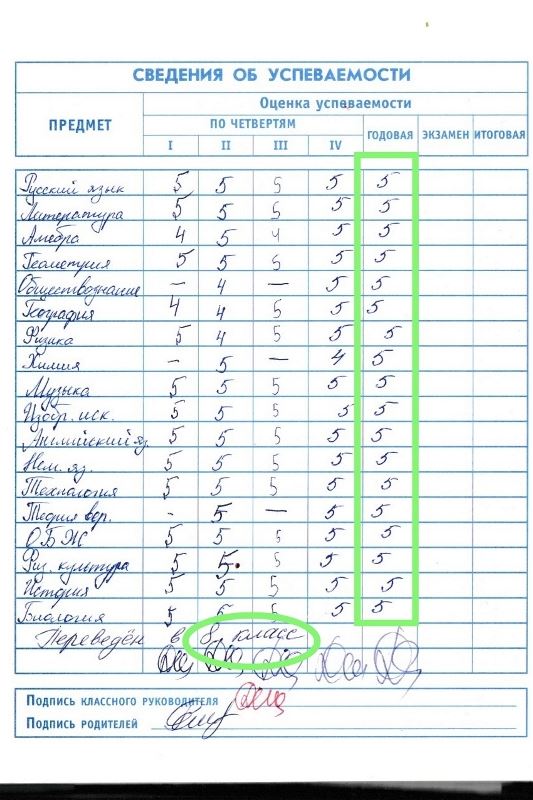 СВЕДЕНИЯ ОБ УСПЕВАЕМОСТИ
ПРЕДМЕТ Оценка успеваемости
ПО ЧЕТВЕРТЯМ ГОДОВАЯ ЭКЗАМЕН ИТОГОВАЯ
I II III IV
Русский язык 5 5 5 5 5
Литература 5 5 5 5 5
Алгебра 4 5 4 5 5
Геометрия 5 5 5 5 5
Обществознание — 4 — 5 5
География 4 4 5 5 5
Физика 5 4 5 5 5
Химия — 5 — 4 5
Музыка 5 5 5 5 5
Изобр. иск. 5 5 5 5 5
Английский яз. 5 5 5 5 5
Нем. яз. 5 5 5 5 5
Технология 5 5 5 5 5
Теория вер. - 5 — 5 5
ОБЖ 5 5 5 5 5
Физ. культура 5 5. 5 5 5
История 5 5 5 5 5
Биология 5 5 5 5 5
Переведён в 8 класс
Подпись классного руководителя
Подпись родителей